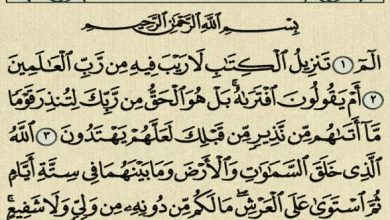 بِسْمِ ٱللَّهِ ٱلرَّحْمَٰنِ ٱلرَّحِيمِ
الٓمٓ ١ تَنزِيلُ ٱلْكِتَٰبِ لَا رَيْبَ فِيهِ مِن رَّبِّ ٱلْعَٰلَمِينَ
٢ أَمْ يَقُولُونَ ٱفْتَرَىٰهُ ۚ بَلْ هُوَ ٱلْحَقُّ مِن رَّبِّكَ لِتُنذِرَ قَوْمًا
مَّآ أَتَىٰهُم مِّن نَّذِيرٍ مِّن قَبْلِكَ لَعَلَّهُمْ يَهْتَدُونَ ٣ ٱللَّهُ
ٱلَّذِى خَلَقَ ٱلسَّمَٰوَٰتِ وَٱلْأَرْضَ وَمَا بَيْنَهُمَا فِى سِتَّةِ أَيَّامٍ
ثُمَّ ٱسْتَوَىٰ عَلَى ٱلْعَرْشِ ۖ مَا لَكُم مِّن دُونِهِۦ مِن وَلِىٍّ وَلَا شَفِيعٍ ۚ